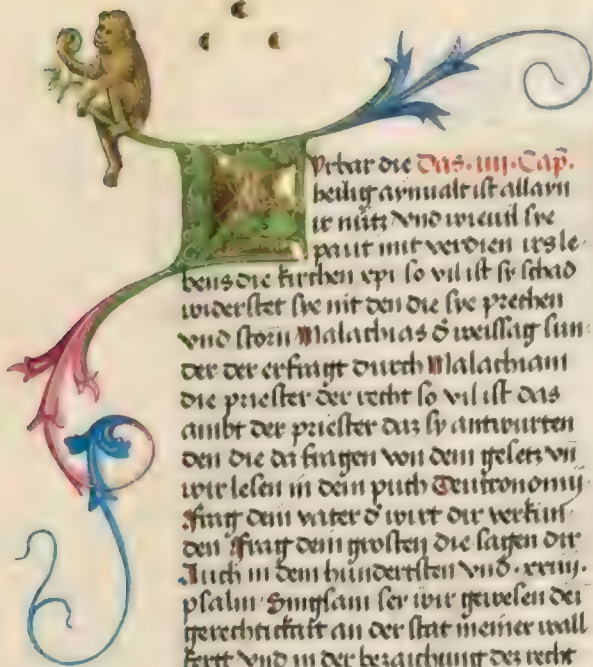 Vrbar die Das ·iiij· Cap.
heilig aynualt ist allayn
ir nütz vnd wieuil sye
paut mit verdien irs le
bens die kirchen xpi so vil ist sy schad
widerstet sye nit den die sye prechen
vnd störn Malachias d̕ weissag sun
der der erfragt durch Malachiam
die priester der recht so vil ist das
ambt der priester daz sy antwurten
den die da fragen von dem gesetz vn̄
wir lesen in dem puch Deutronomij
frag dein vater d̕ wirt dir verkün
den frag dein grösten die sagen dir
Auch in dem hündertisten vnd ·xviij·
psalm Singsam ser wir gewesen dei
gerechtickait an der stat meiner wall
fertt vnd in der bezaichnung dez recht